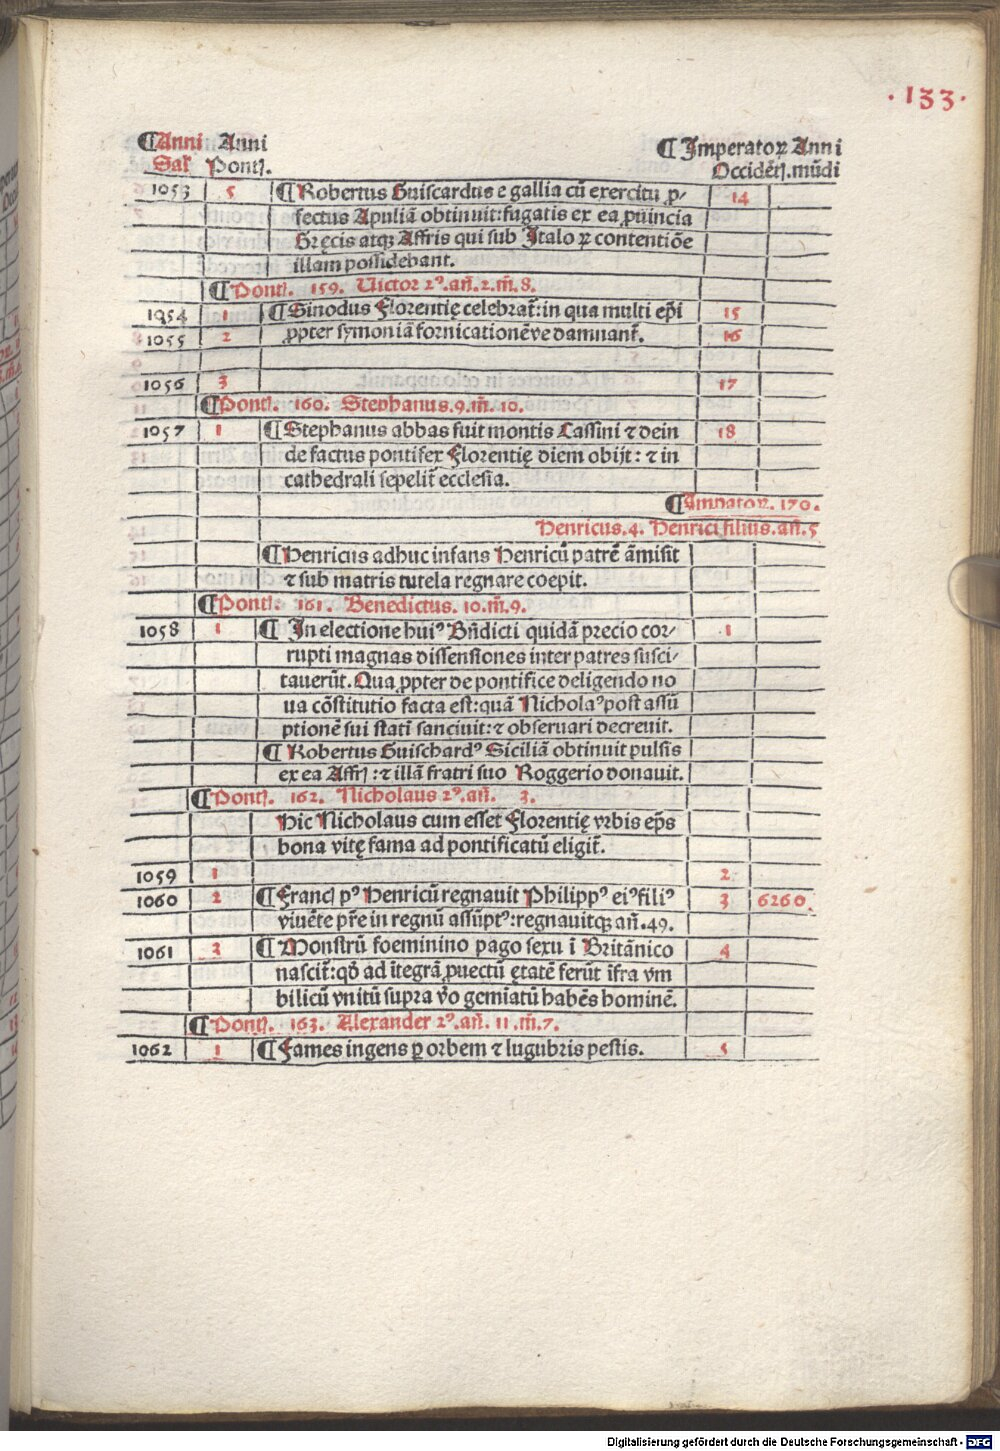 ·133·
¶Anni Anni ¶ Imperatoꝝ Anni
Saľ Pontꝭ. Occidētꝭ.mūdi
1053 5 ¶ Robertus Guiscardus e gallia cū exercitu ꝓ- 14
fectus Apuliā obtinuit:fugatis ex ea ꝓuincia
Gręcis atqꝫ Affris qui sub Italoꝝ contentiōe
illam possidebant.
¶Pontꝭ. 159. Uictor 2ꝰ.añ.2.m̄.8.
1054 1 ¶ Sinodus Florentię celebrat̄:in qua multi ep̄i 15
1055 2 ꝓpter symoniā fornicationēve damnant̄. 16
1056 3 17
¶Pontꝭ. 160. Stephanus.9.m̄.10.
1057 1 ¶ Stephanus abbas fuit montis Cassini ⁊ dein 18
de factus pontifex Florentię diem obijt: ⁊ in
cathedrali sepelit̄ ecclesia.
¶Impatoꝝ.170.
Henricus.4. Henrici filius.añ.5
¶Henricus adhuc infans Henricū patrē āmisit
⁊ sub matris tutela regnare coepit.
¶Pontꝭ: 161. Benedictus. 10.m̄.9.
1058 1 ¶ In electione huiꝰ Bñdicti quidā precio cor- 1
rupti magnas dissensiones inter patres susci-
tauerūt. Qua ꝓpter de pontifice deligendo no
ua cōstitutio facta est:quā Nicholaꝰ post assū
ptionē sui statī sanciuit:⁊ obseruari decreuit.
¶ Robertus Guischardꝰ Siciliā obtinuit pulsis
ex ea Affrꝭ:⁊ illā fratri suo Roggerio donauit.
¶Pontꝭ. 162. Nicholaus 2ꝰ.añ. 3.
Hic Nicholaus cum esset Florentię vrbis ep̄s
bona vitę fama ad pontificatū eligit̄.
1059 1 2
1060 2 ¶Francꝭ pꝰ Henricū regnauit Philippꝰ eiꝰ filiꝰ 3 6260.
viuēte pr̄e in regnū assūptꝰ:regnauitqꝫ añ.49.
1061 3 ¶ Monstrū foeminino pago sexu ī Britānico 4
nascit̄:qđ ad ītegrā ꝓuectū ętatē ferūt īfra vm
bilicū vnitū supra v̄o gemīatū habēs hominē.
¶Pontꝭ. 163. Alexander 2ꝰ.añ. 11.m̄.7.
1062 1 ¶Fames ingens ꝑ orbem ⁊ lugubris pestis. 5
Digitalisierung gefördert durch die Deutsche Forschungsgemeinschaft - DFG